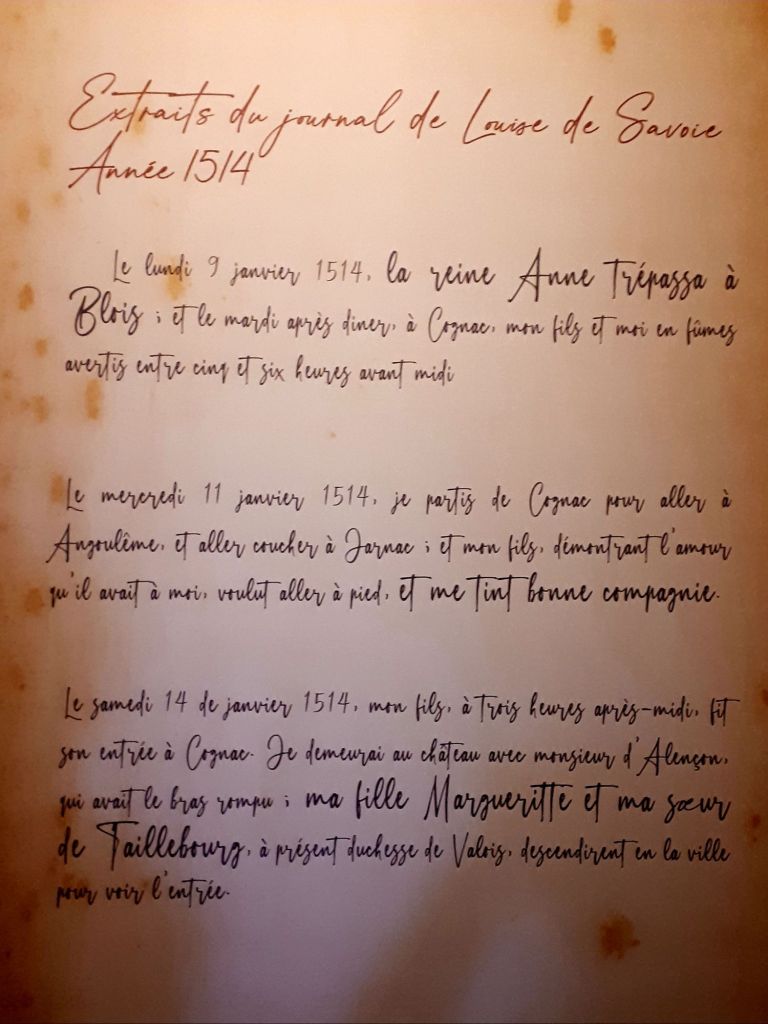 Extraits du journal de Louise de Savoie
Année 1514
Le lundi 9 janvier 1514, la reine Anne trépassa à
Blois ; et le mardi après diner, à Cognac, mon fils et moi en fûmes
avertis entre cinq et six heures avant midi
Le mercredi 11 janvier 1514, je partis de Cognac pour aller à
Angoulême, et aller coucher à Jarnac ; et mon fils, démontrant l'amour
qu'il avait à moi, voulut aller à pied, et me tint bonne compagnie.
Le samedi 14 de janvier 1514, mon fils, à trois heures après-midi, fit
son entrée à Cognac. Je demeurai au château avec monsieur d'Alençon,
qui avait le bras rompu ; ma fille Margueritte et ma sœur
de Taillebourg, à présent duchesse de Valois, descendirent en la ville
pour voir l'entrée.